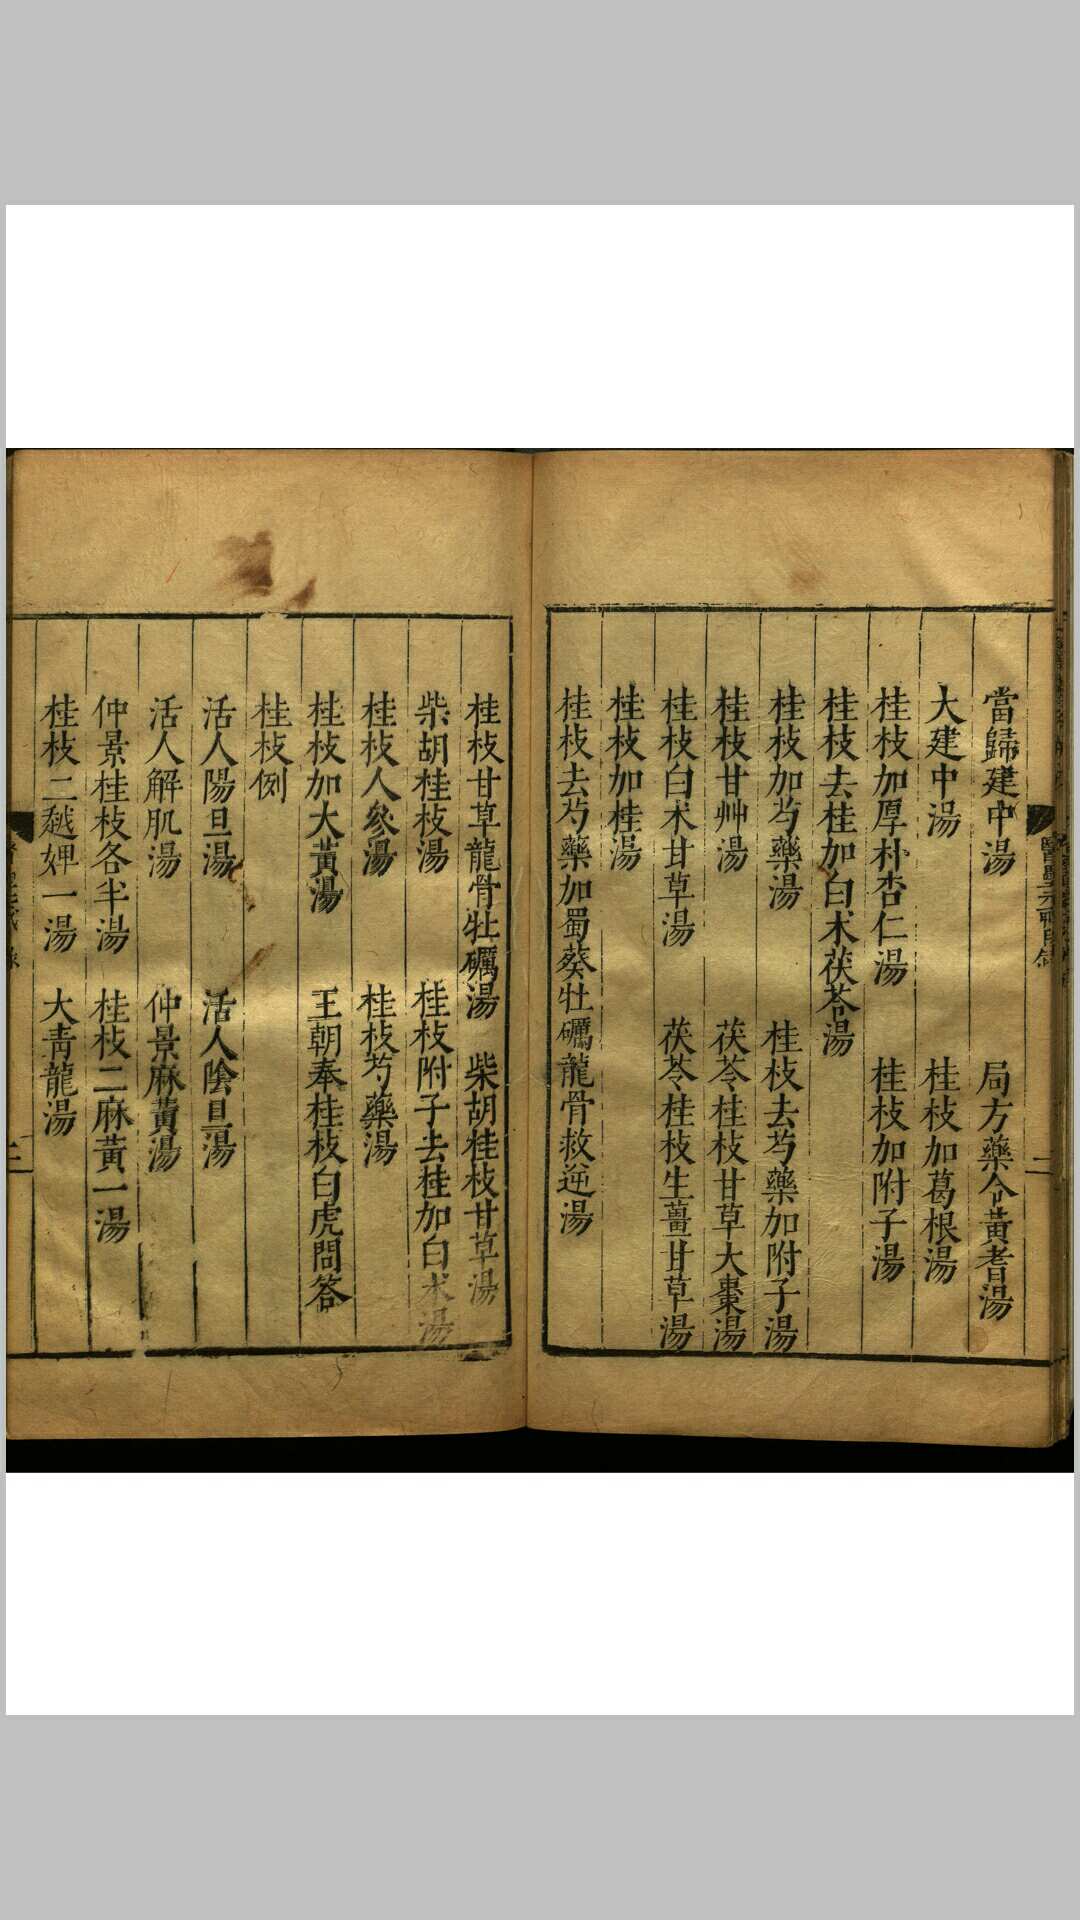 當歸建中湯　局方藥令黃耆湯
大建中湯　桂枝加葛根湯
桂枝加厚朴杏仁湯　桂枝加附子湯
桂枝去桂加白朮茯苓湯
桂枝加芍藥湯　桂枝去芍藥加附子湯
桂枝甘艸湯　茯苓桂枝甘草大棗湯
桂枝白朮甘草湯　茯苓桂枝生薑甘草湯
桂枝加桂湯
桂枝去芍藥加蜀葵牡礪龍骨救逆湯
桂枝甘草龍骨牡礪湯　柴胡桂枝甘草湯
柴胡桂枝湯　桂枝附子去桂加白朮湯
桂枝人參湯　桂枝芍藥湯
桂枝加大黃湯　王朝奉桂枝白虎問答
桂枝例
活人陽旦湯　活人陰旦湯
活人解肌湯　仲景麻黃湯
仲景桂枝各半湯　桂枝二麻黃一湯
桂枝二越婢一湯　大青龍湯